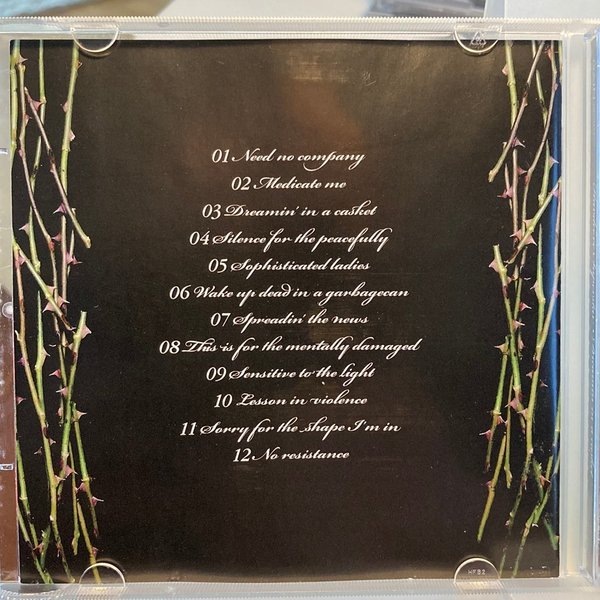 01 Need no company
02 Medicate me
03 Dreamin' in a casket
04 Silence for the peacefully
05 Sophisticated ladies
06 Wake up dead in a garbagecan
07 Spreadin' the news
08 This is for the mentally damaged
09 Sensitive to the light
10 Lesson in violence
11 Sorry for the shape I'm in
12 No resistance